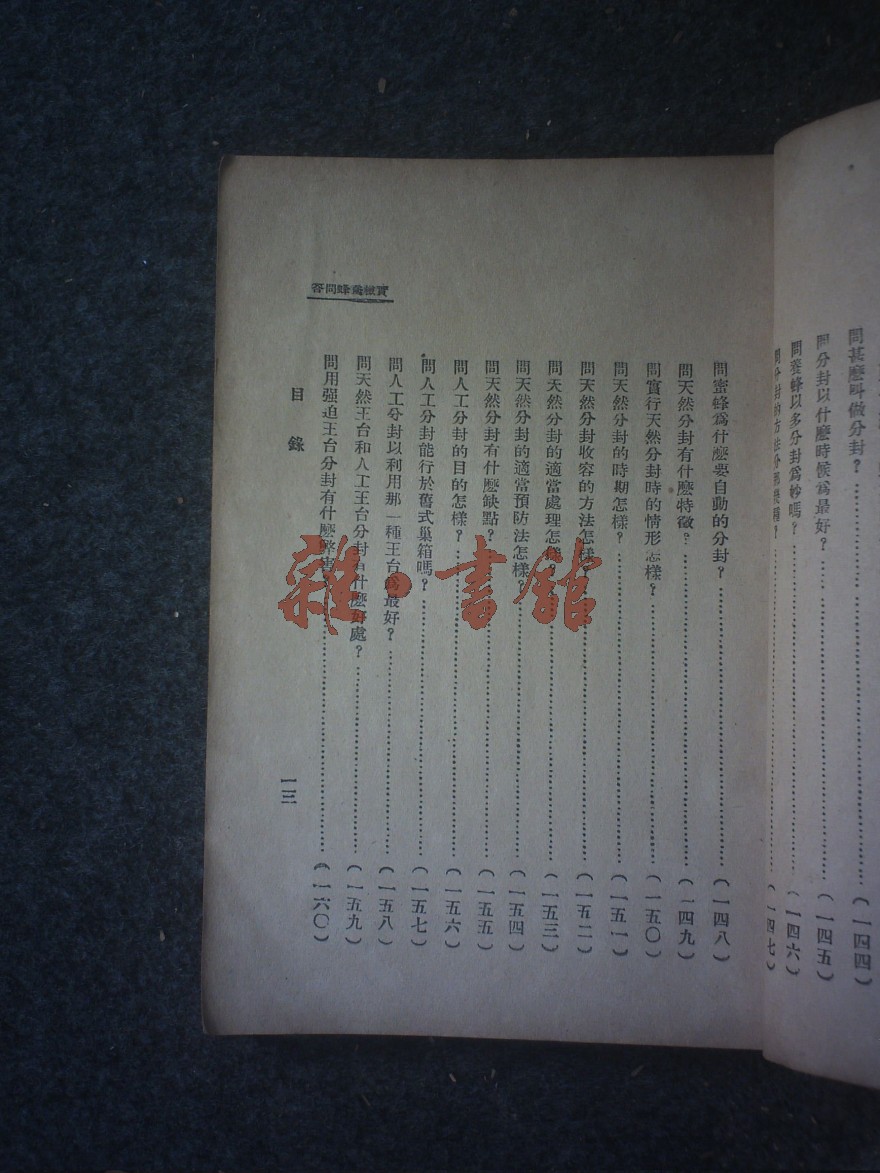 問甚麽叫做分封?……(一四四)
問分封以什麽時候爲最好?……(一四五)
問養蜂以多分封爲妙嗎?……(一四六)
問分封的方法分那幾種?……(一四七)
實驗養蜂問答
問蜜蜂爲什麽要自動的分封?……(一四八)
問天然分封有什麽特徵?……(一四九)
問實行天然分封時的情形怎樣?……(一五〇)
問天然分封的時期怎樣?……(一五一)
問天然分封收容的方法怎樣?……(一五二)
問天然分封的適當處理怎樣?……(一五三)
問天然分封的適當預防法怎樣?……(一五四)
問天然分封有什麽缺點?……(一五五)
問人工分封的目的怎樣?……(一五六)
問人工分封能行於舊式巢箱嗎?……(一五七)
問人工分封以利用那一種王台爲最好?……(一五八)
問天然王台和人工王台分封有什麽好處?……(一五九)
問用强迫王台分封有什麽弊害?……(一六〇)
目錄
一三
雜·書館